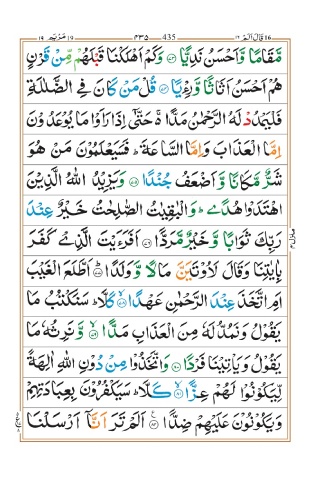 قَالَ اَلَمْ ١٦ 435 ٤٣٥ مَرْيَم ١٩
مَّقَامًا وَّاَحْسَنُ نَدِيًّا ﴿٧٣﴾ وَكَمْ اَهْلَكْنَا قَبْلَهُمْ مِّنْ قَرْنٍ
هُمْ اَحْسَنُ اَثَاثًا وَّرِءْيًا ﴿٧٤﴾ قُلْ مَنْ كَانَ فِى الضَّلٰلَةِ
فَلْيَمْدُدْ لَهُ الرَّحْمٰنُ مَدًّا ۚ حَتّٰٓى اِذَا رَاَوْا مَا يُوْعَدُوْنَ
اِمَّا الْعَذَابَ وَاِمَّا السَّاعَةَ ؕ فَسَيَعْلَمُوْنَ مَنْ هُوَ
شَرٌّ مَّكَانًا وَّاَضْعَفُ جُنْدًا ﴿٧٥﴾ وَيَزِيْدُ اللّٰهُ الَّذِيْنَ
اهْتَدَوْا هُدًى ؕ وَالْبٰقِيٰتُ الصّٰلِحٰتُ خَيْرٌ عِنْدَ
رَبِّكَ ثَوَابًا وَّخَيْرٌ مَّرَدًّا ﴿٧٦﴾ اَفَرَءَيْتَ الَّذِىْ كَفَرَ
بِاٰيٰتِنَا وَقَالَ لَاُوْتَيَنَّ مَالًا وَّوَلَدًا ﴿٧٧﴾ اَطَّلَعَ الْغَيْبَ
اَمِ اتَّخَذَ عِنْدَ الرَّحْمٰنِ عَهْدًا ﴿٧٨﴾ كَلَّا ؕ سَنَكْتُبُ مَا
يَقُوْلُ وَنَمُدُّ لَهٗ مِنَ الْعَذَابِ مَدًّا ﴿٧٩﴾ وَّنَرِثُهٗ مَا
يَقُوْلُ وَيَاْتِيْنَا فَرْدًا ﴿٨٠﴾ وَاتَّخَذُوْا مِنْ دُوْنِ اللّٰهِ اٰلِهَةً
لِّيَكُوْنُوْا لَهُمْ عِزًّا ﴿٨١﴾ كَلَّا ؕ سَيَكْفُرُوْنَ بِعِبَادَتِهِمْ
وَيَكُوْنُوْنَ عَلَيْهِمْ ضِدًّا ﴿٨٢﴾ اَلَمْ تَرَ اَنَّاۤ اَرْسَلْنَا